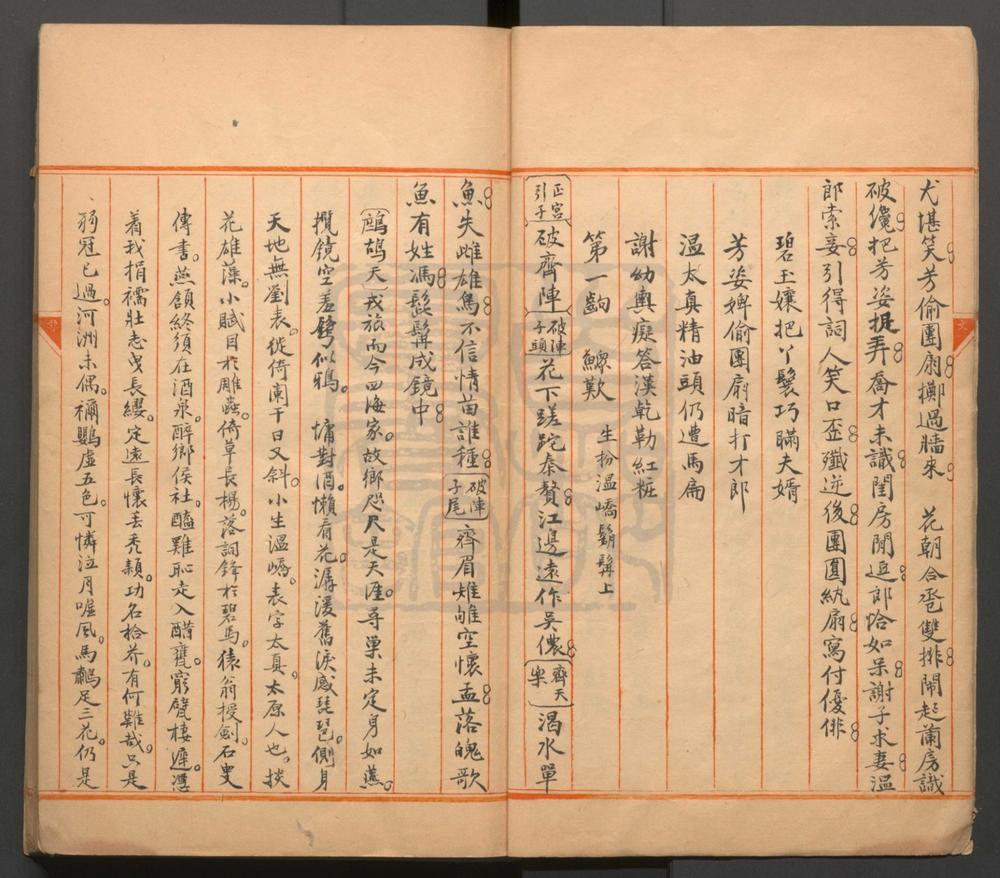 尤堪笑芳偷團扇擲過牆來　花朝合巹雙排鬧起蘭房識
破儳把芳姿提弄喬才未識閨房閒逗郎恰如呆謝子求妻溫
郎索妾引得詞人笑口盃殲逆後團圓紈扇寫付優俳
碧玉孃把丫鬟巧瞞夫婿
芳姿婢偷團扇暗打才郎
溫太真精油頭仍遭馬扁
謝幼輿癡答漢乾勒紅粧
第一齣　鰥歎　生扮溫嶠鬍髯上
正宮引子　破齊陣　破陣子頭　花下蹉跎秦贅江邊遠作吳儂　齊天樂　渴水單
魚失雌雄鳥不信情苗誰種　破陣子尾　齊眉雉雊空懷孟落魄歌
魚有姓馮髭髯成鏡中
（鷓鴣天）戎旅而今四海家。故鄉咫尺是天涯。尋巢未定身如燕。
攬鏡空羞鬢似鴉。　慵對酒。懶看花。潺湲舊淚感琵琶。側身
天地無劉表。徙倚闌干日又斜。小生溫嶠。表字太真。太原人也。掞
花雄藻。小賦目於雕蟲。倚草長楊。落詞鋒於碧馬。猿翁授劍。石叟
傳書。燕頷終須在酒泉。醉鄉侯社。醯難恥走入醋甕。窮臂棲遲。憑
着我捐襦壯志曳長纓。定遠長懷丟禿穎。功名拾芥。有何難哉。只是
弱冠已過。河洲未偶。禰鸚虛五色。可憐泣月嘘風。馬鷊足三花。仍是